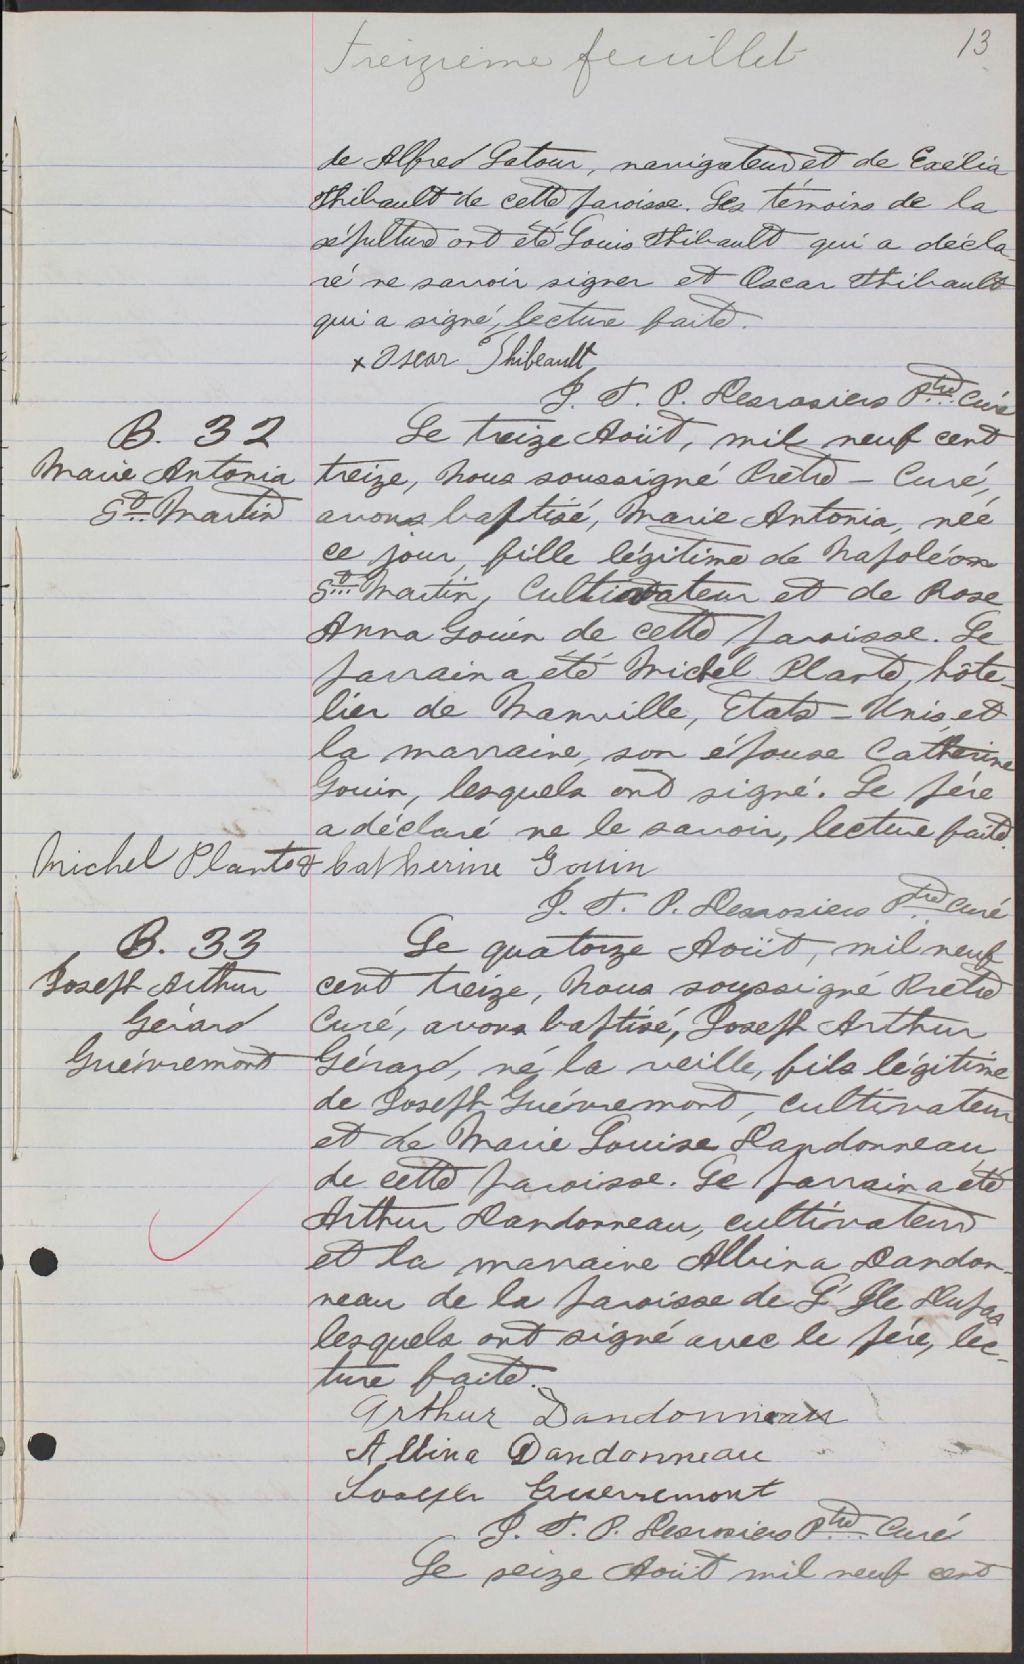 Treizième feuillet
13
de Alfred Latour, navigateur et de Exélia
Thibault de cette paroisse. Les témoins de la
sépulture ont été Louis Thibault qui a décla-
ré ne savoir signer et Oscar Thibault
qui a signé, lecture faite.
x Oscar Thibeault
J. T. P. Desrosiers Ptre Curé
B. 32
Marie Antonia
St Martin
Le treize Août, mil neuf cent
treize, Nous soussigné Prêtre - Curé,
avons baptisé, Marie Antonia, née
ce jour, fille légitime de Napoléon
St Martin, Cultivateur et de Rose
Anna Gouin de cette paroisse. Le
parrain a été Michel Plante, hôte-
lier de Manville, Etats-Unis, et
la marraine, son épouse Catherine
Gouin, lesquels ont signé. Le père
a déclaré ne le savoir, lecture faite.
Michel Plante & Catherine Gouin
J. T. P. Desrosiers Ptre Curé
B. 33
Joseph Arthur
Gérard
Guévremont
Le quatorze Août, mil neuf
cent treize, Nous soussigné Prêtre
Curé, avons baptisé, Joseph Arthur
Gérard, né la veille, fils légitime
de Joseph Guévremont, cultivateur
et de Marie Louise Dandonneau
de cette paroisse. Le parrain a été
Arthur Dandonneau, cultivateur
et la marraine Albina Dandon-
neau de la paroisse de l'Ile Dupas
lesquels ont signé avec le père, lec-
ture faite.
Arthur Dandonneau
Albina Dandonneau
Joseph Guevremont
J. T. P. Desrosiers Ptre Curé
Le seize Août mil neuf cent